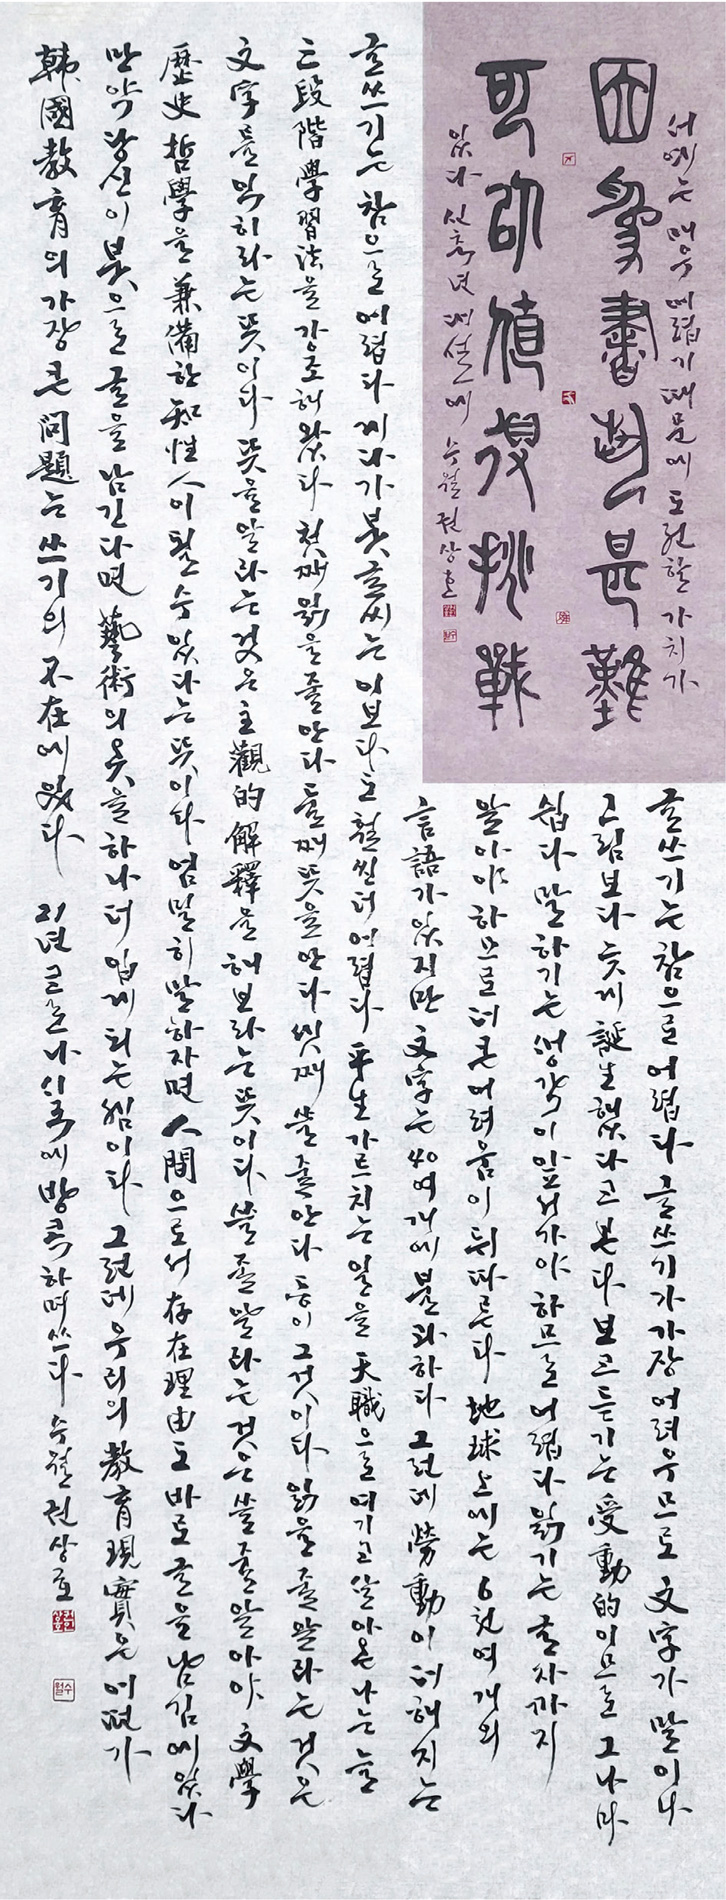 서예는 매우 어렵기 때문에 도전할 가치가
因為書是難
可値得挑戰
있다 신축년 대설에 수월 권상호
글쓰기는 참으로 어렵다 글쓰기가 가장 어려우므로 文字가 말이나
그림보다 늦게 誕生했다고 본다 보고 듣기는 受動的이므로 그나마
쉽다 말하기는 생각이 앞서가야 하므로 어렵다 읽기는 글자까지
알아야 하므로 더 큰 어려움이 뒤따른다 地球上에는 6천여 개의
言語가 있지만 文字는 40여 개에 불과하다 그런데 勞動이 더해지는
글쓰기는 참으로 어렵다 게다가 붓글씨는 이보다도 훨씬 더 어렵다 平生 가르치는 일을 天職으로 여기고 살아온 나는 늘
三段階學習法을 강조해 왔다 첫째 읽을 줄 안다 둘째 뜻을 안다 셋째 쓸 줄 안다 등이 그것이다 읽을 줄 알라는 것은
文字를 익히라는 뜻이다 뜻을 알라는 것은 主觀的 解釋을 해보라는 뜻이다 쓸 줄 알라는 것은 쓸 줄 알아야 文學
歷史 哲學을 兼備한 知性人이 될 수 있다는 뜻이다 엄밀히 말하자면 人間으로서 存在理由도 바로 글을 남김에 있다
만약 당신이 붓으로 글을 남긴다면 藝術의 옷을 하나 더 입게 되는 셈이다 그런데 우리의 敎育現實은 어떤가
韓國敎育의 가장 큰 問題는 쓰기의 不在에 있다 21년 방콕하며 쓰다 수월 권상호